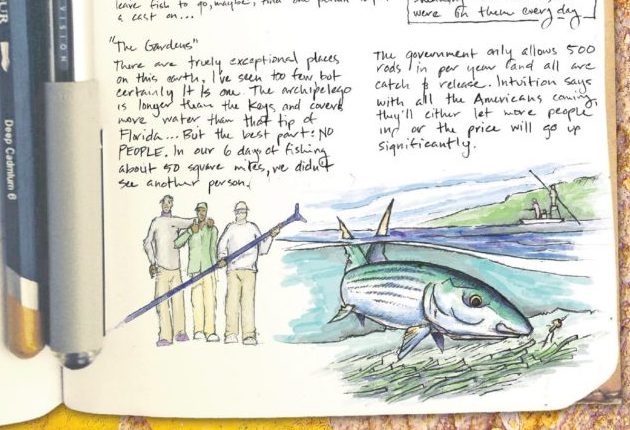 leave fish to go, maybe, find one person
a cast on...
were on them every day
"The Gardens"
There are truely exceptional places
on this earth, I've seen too few but
certainly It is one. The archipelego
is longer than the Keys, and covers
more water than that tip of
Florida... But the best part: NO
PEOPLE. In our 6 days of fishing
about 50 square miles, we didn't
see another person.
The government only allows 500
rods in per year and all are
catch & release. Intuition says
with all the Americans coming,
they'll either let more people
in, or the price will go up
significantly.
UR
VISION
Deep Cadmium 6